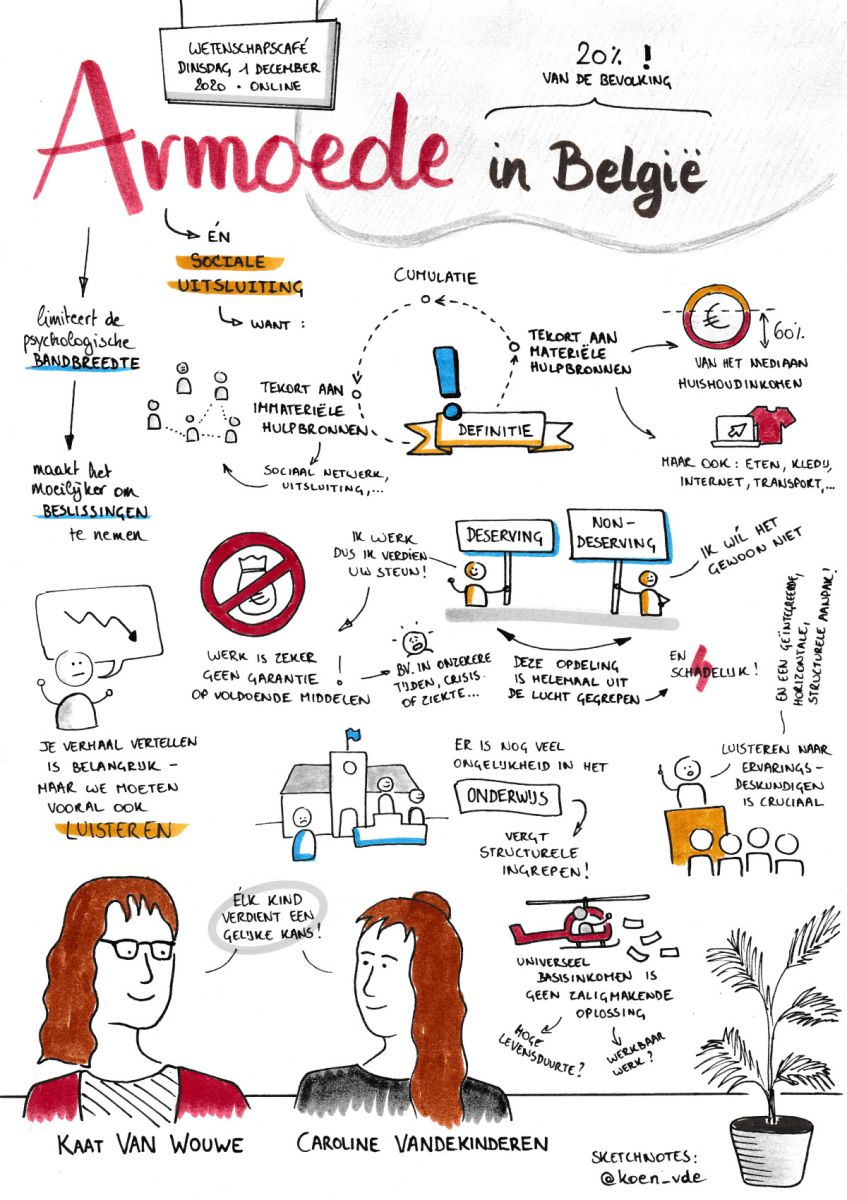 WETENSCHAPSCAFÉ
DINSDAG 1 DECEMBER
2020 • ONLINE
20% !
VAN DE BEVOLKING
Armoede in België
limiteert de
psychologische
BANDBREEDTE
maakt het
moeilijker om
BESLISSINGEN
te nemen
ÉN
SOCIALE
UITSLUITING
WANT :
CUMULATIE
TEKORT AAN
IMMATERIËLE
HULPBRONNEN
SOCIAAL NETWERK,
UITSLUITING,...
!
DEFINITIE
TEKORT AAN
MATERIËLE
HULPBRONNEN
€
60%
VAN HET MEDIAAN
HUISHOUDINKOMEN
MAAR OOK : ETEN, KLEDIJ,
INTERNET, TRANSPORT,...
€
IK WERK
DUS IK VERDIEN
UW STEUN!
DESERVING
NON-
DESERVING
IK WIL HET
GEWOON NIET
WERK IS ZEKER
GEEN GARANTIE !
OP VOLDOENDE MIDDELEN
BV. IN ONZEKERE
TIJDEN, CRISIS
OF ZIEKTE...
DEZE OPDELING
IS HELEMAAL UIT
DE LUCHT GEGREPEN
EN
SCHADELIJK!
JE VERHAAL VERTELLEN
IS BELANGRIJK –
MAAR WE MOETEN
VOORAL OOK
LUISTEREN
ER IS NOG VEEL
ONGELIJKHEID IN HET
ONDERWIJS
VERGT
STRUCTURELE
INGREPEN!
LUISTEREN NAAR
ERVARINGS-
DESKUNDIGEN
IS CRUCIAAL
EN EEN GEÏNTEGREERDE,
HORIZONTALE,
STRUCTURELE AANPAK!
ÉLK KIND
VERDIENT EEN
GELIJKE KANS!
UNIVERSEEL
BASISINKOMEN IS
GEEN ZALIGMAKENDE
OPLOSSING
HOGE
LEVENSDUURTE?
WERKBAAR
WERK?
KAAT VAN WOUWE
CAROLINE VANDEKINDEREN
SKETCHNOTES:
@koen_vde